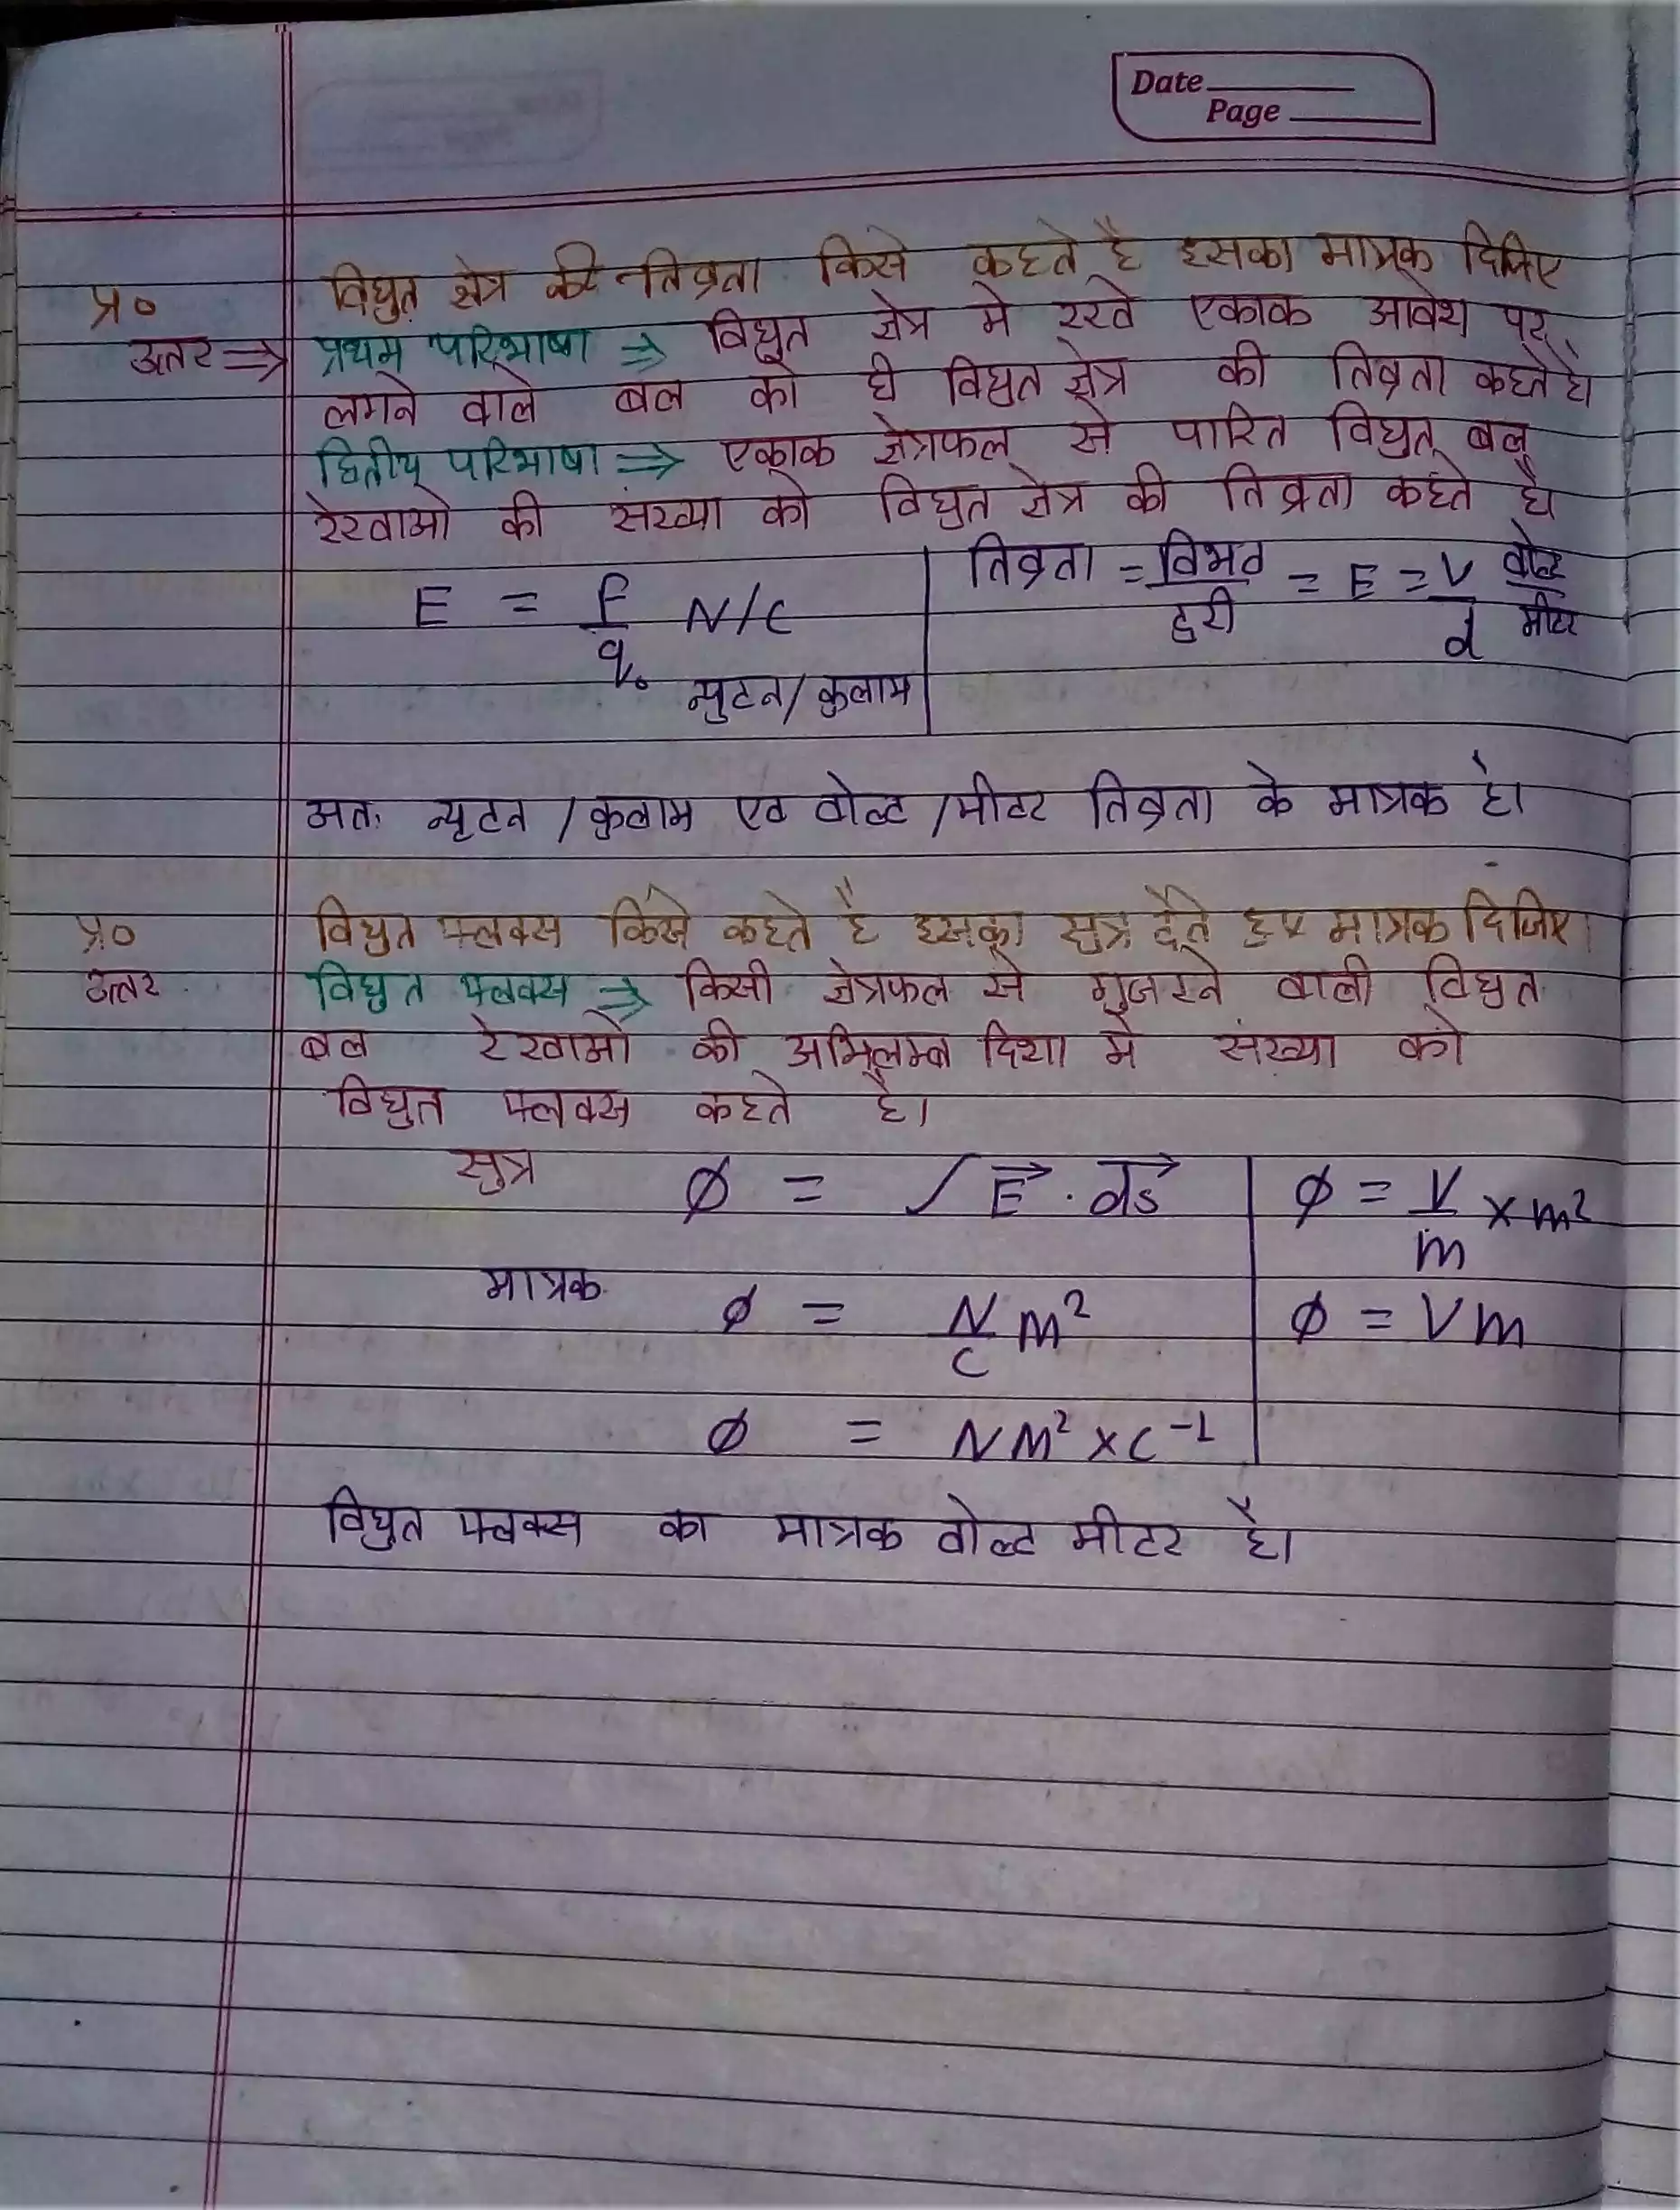 Date
Page
प्र० विधुत क्षेत्र की तिव्रता किसे कहते है इसका मात्रक दिजिए
उत्तर ⇒ प्रथम परिभाषा ⇒ विधुत क्षेत्र मे रखे एकाक आवेश पर
लगने वाले बल को ही विधुत क्षेत्र की तिव्रता कहते है।
द्वितीय परिभाषा ⇒ एकाक क्षेत्रफल से पारित विधुत बल
रेखाओ की संख्या को विधुत क्षेत्र की तिव्रता कहते है।
E = F/q₀ N/C | तिव्रता = विभव/दुरी = E = V/d वोल्ट/मीटर
न्युटन/कुलाम
अतः न्यूटन / कुलाम एव वोल्ट /मीटर तिव्रता के मात्रक है।
प्र० विधुत फ्लक्स किसे कहते है इसका सुत्र देते हुए मात्रक दिजिए।
उत्तर विधुत फ्लक्स ⇒ किसी क्षेत्रफल से गुजरने वाली विधुत
बल रेखाओ की अभिलम्ब दिशा मे संख्या को
विधुत फ्लक्स कहते है।
सुत्र ϕ = ∫ E⃗ · d⃗s | ϕ = V/m × m²
मात्रक ϕ = N/C m² | ϕ = Vm
ϕ = Nm² × C⁻¹
विधुत फ्लक्स का मात्रक वोल्ट मीटर है।